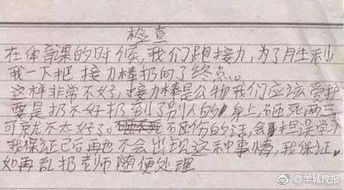 检查
在体育课的时候,我们跑接力,为了月生利
我一下把接力棒扔向了终点。
这样非常不好,接力棒是公物我们应该爱护
要是扔不好扔到了别人的身上,砸死两三
可就不太好了。砸伤的话,会担误学习
我保证已后再也不会出现这种事情,我保证,
如再乱扔老师随便处理
@羊城晚报